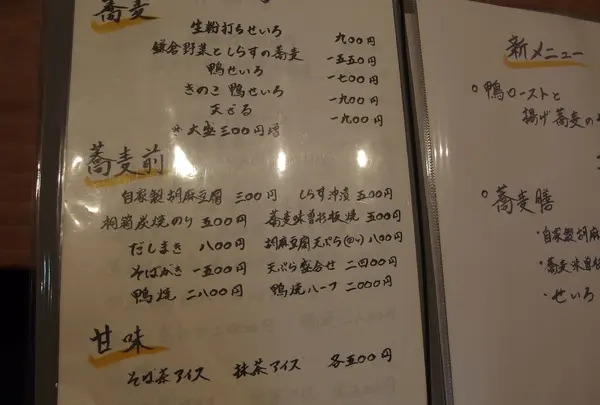 蕎麦
生粉打ちせいろ 九〇〇円
鎌倉野菜としらすの蕎麦 一五五〇円
鴨せいろ 一七〇〇円
きのこ鴨せいろ 一九〇〇円
天ざる 一九〇〇円
※大盛三〇〇円増
蕎麦前
自家製胡麻豆腐 三〇〇円 しらす沖漬 五〇〇円
桐箱炭焼のり 五〇〇円 蕎麦味噌杉板焼 五〇〇円
だしまき 八〇〇円 胡麻豆腐天ぷら(四ヶ) 八〇〇円
そばがき 一五〇〇円 天ぷら盛合せ 二四〇〇円
鴨焼 二八〇〇円 鴨焼ハーフ 二〇〇〇円
甘味
そば茶アイス 抹茶アイス 各五〇〇円
新メニュー
鴨ローストと
揚げ蕎麦の
蕎麦膳
・自家製胡麻
・蕎麦味噌
・せいろ